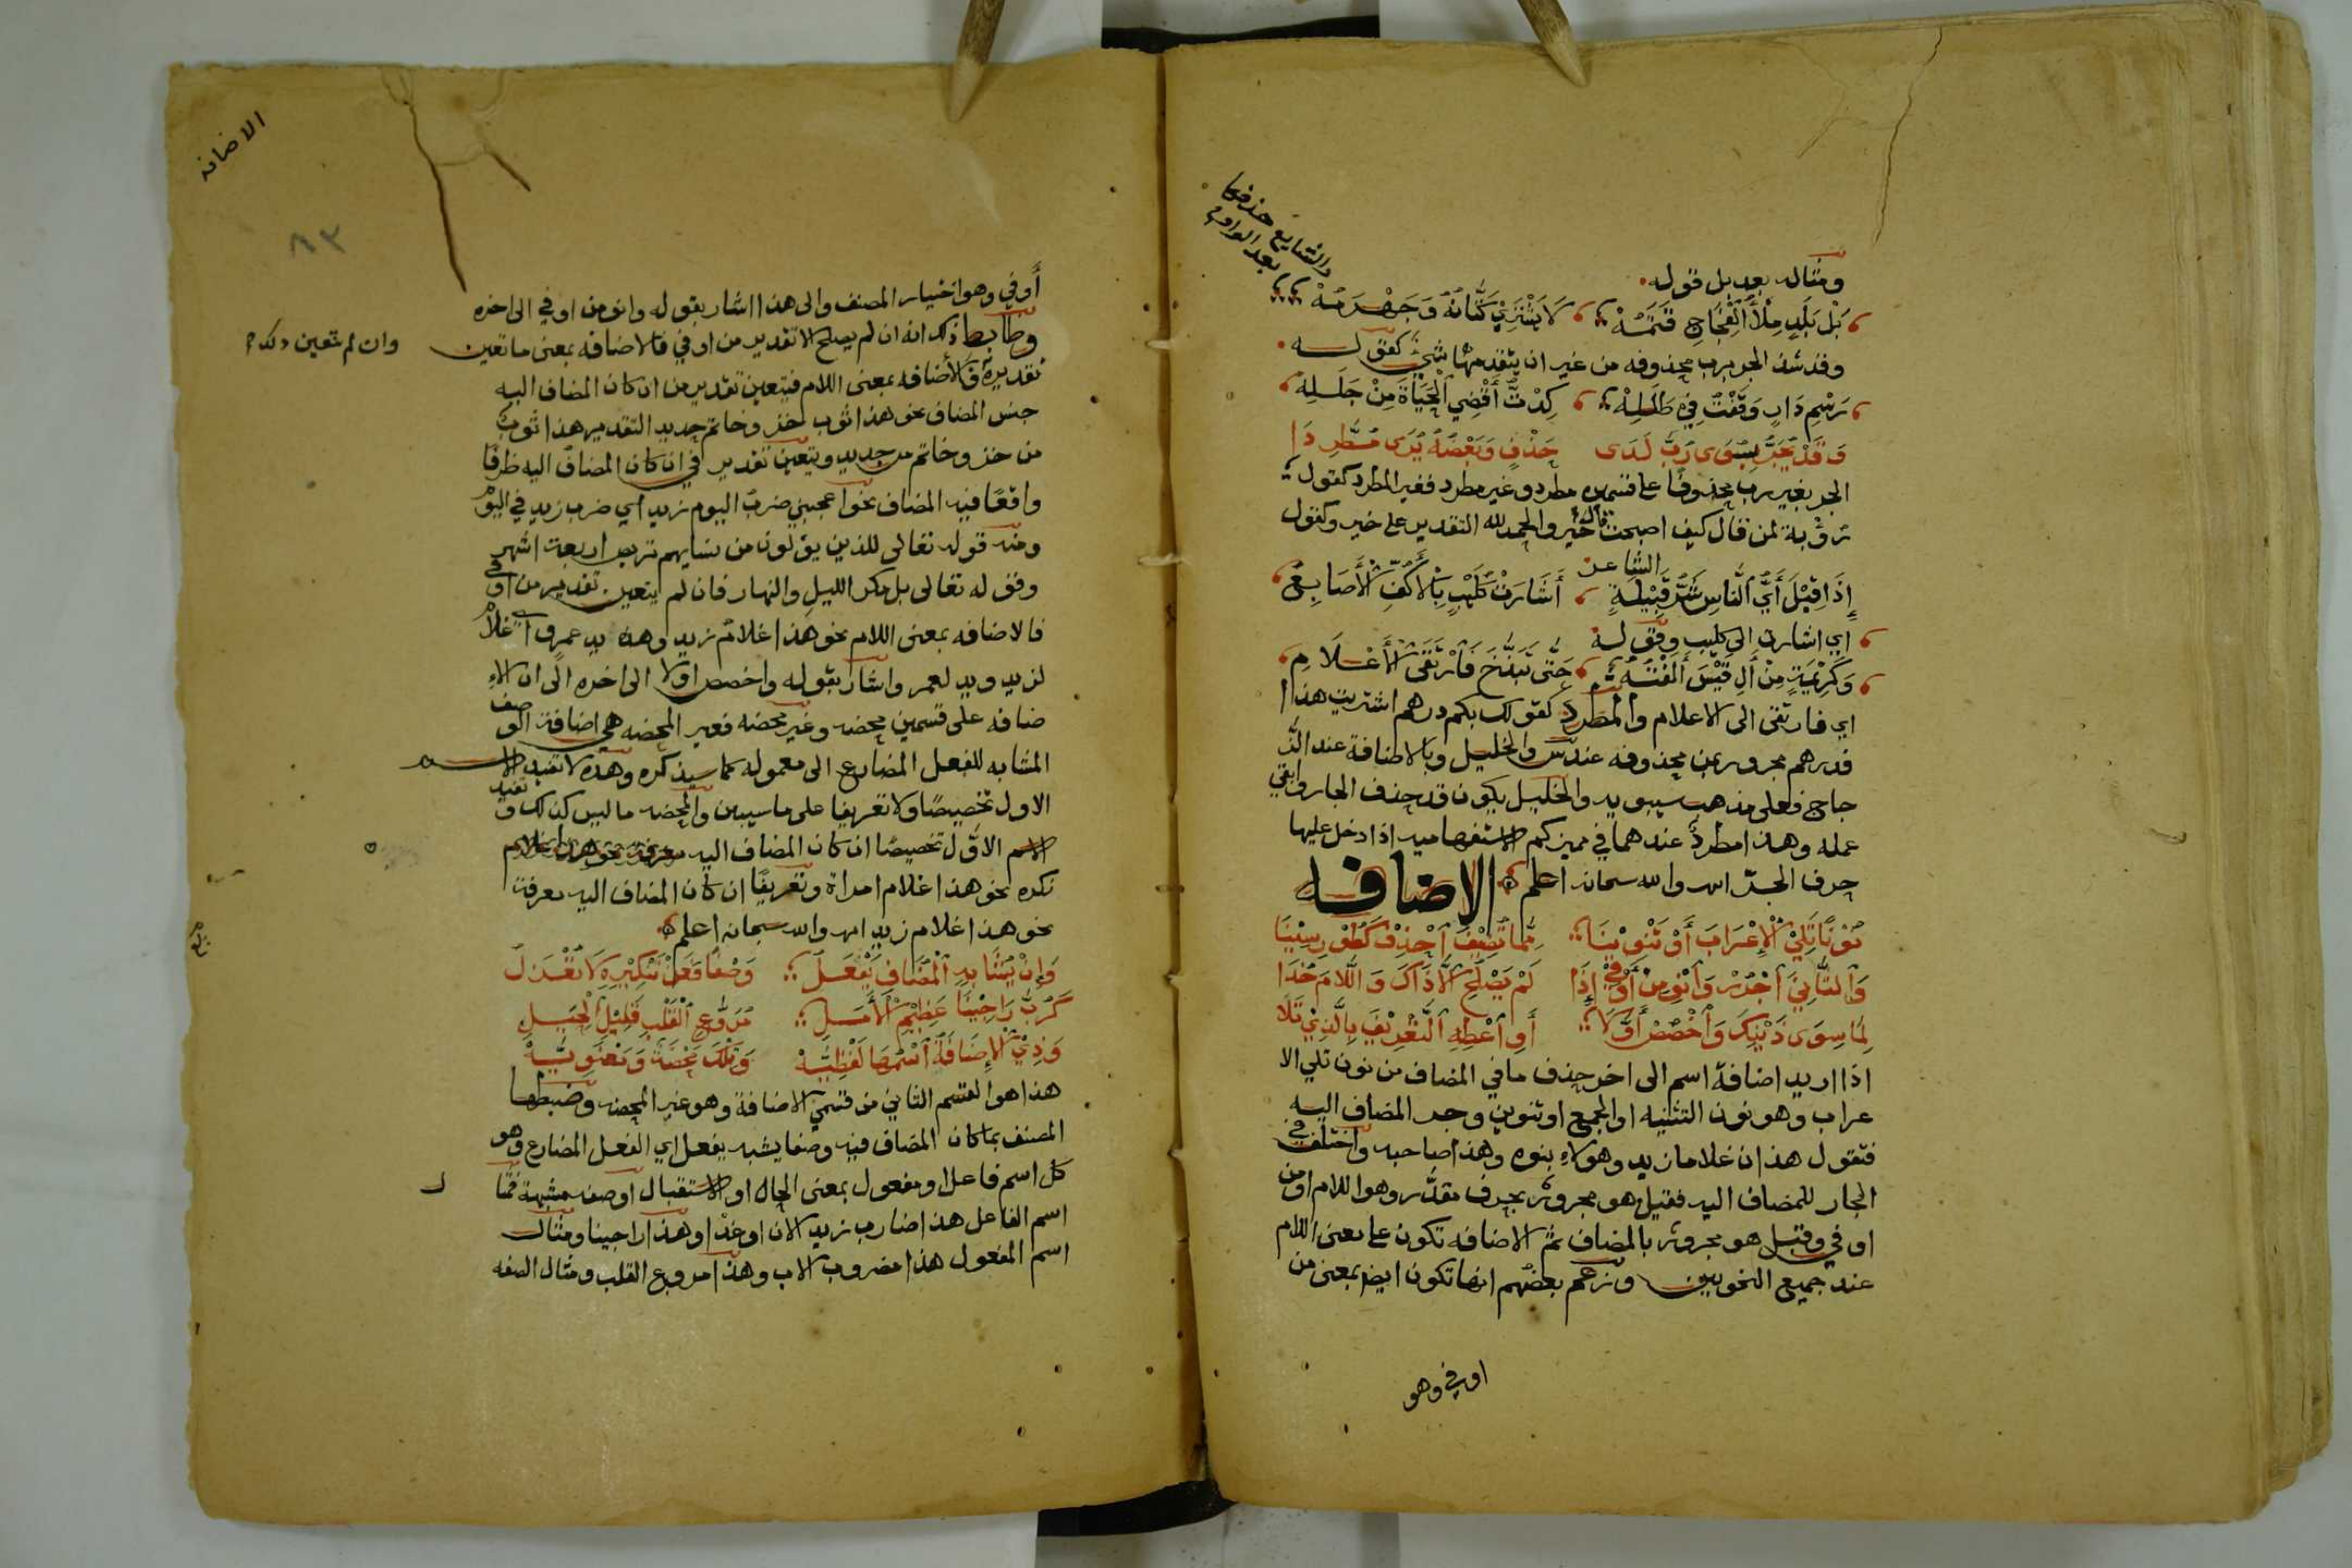 والشايع حذفها
بعد الواو
ومثاله بعد بل قوله
بَلْ بَلَدٍ مِلْأُ ٱلْفِجَاجِ قَتَمُهْ لَا يُشْتَرِيْ كَتَّانُهُ وَجَهْرَمُهْ
وقد شذ الجر برب محذوفه من غير ان يتقدمها شيٌ كقولـه
رَسْمِ دَارٍ وَقَفْتُ فِيْ طَلَلِهْ كِدْتُ أَقْضِي ٱلْحَيَاةَ مِنْ جَلَلِهْ
وَقَدْ يُجَرُّ بِسِوَى رُبَّ لَدَى حَذْفٍ وَبَعْضُهُ يُرَى مُطَّرِدَا
الجر بغير رب محذوفًا على قسمين مطرد وغير مطرد فغير المطرد كقول
رُؤْبة لمن قال كيف اصبحت قال خيرٍ والحمد لله التقدير على خير وكقول
الشاعر
إِذَا قِيْلَ أَيُّ ٱلنَّاسِ شَرُّ قَبِيْلَةٍ أَشَارَتْ كُلَيْبٍ بِٱلْأَكُفِّ ٱلْأَصَابِعُ
اي اشارت الى كليب وقولـه
وَكَرِيْمَةٍ مِنْ أَلِ قَيْسَ أَلَفْتُهُ حَتَّى تَبَذَّخَ فَٱرْتَقَى ٱلْأَعْلَامِ
اي فارتقى الى الاعلام والمطرد كقولك بكم درهم اشتريت هذا
فدرهم مجرور بمن محذوفه عند س والخليل وبالاضافة عند الز
جاج فعلى مذهب سيبويه والخليل يكون قد حذف الجار وابقي
عمله وهذا مطردٌ عندهما في مميز كم الاستفهاميه اذا دخل عليها
حرف الجرّ اهـ والله سبحانه اعلم الاضافـه
نُوْنًا تَلِيْ ٱلْإِعْرَابَ أَوْ تَنْوِيْنَا مِمَّا تُضِيْفُ ٱحْذِفْ كَطُوْرِ سِيْنِيَا
وَٱلثَّانِيَ ٱجْرُرْ وَٱنْوِ مِنْ أَوْ فِيْ إِذَا لَمْ يَصْلُحِ ٱلَّا ذَاكَ وَٱللَّامَ خُذَا
لِمَا سِوَى ذَيْنِكَ وَٱخْصُصْ أَوَّلَا أَوِ ٱعْطِهِ ٱلتَّعْرِيْفَ بِالَّذِيْ تَلَا
اذا اريد اضافة اسم الى اخر حذف ما في المضاف من نون تلي الا
عراب وهو نون التثنيه او الجمع او تنوين وجر المضاف اليه
فتقول هذان غلاما زيد وهولاءِ بنوه وهذا صاحبه واختلف في
الجار للمضاف اليه فقيل هو مجرورٌ بحرف مقدّر وهو اللام او من
او في وقيل هو مجرور بالمضاف ثم الاضافه تكون على معنى اللام
عند جميع النحويين وزعم بعضهم انها تكون ايضا بمعنى من
او في وهو
الاضافه
٨٣
أو في وهو اختيار المصنف والى هذا اشار بقوله وانو من او في الى اخره
وضابط ذلك انه ان لم يصلح الا تقدير من او في فالاضافه بمعنى ما تعين
وان لم يتعين ذلك
تقديره فالأضافه بمعنى اللام فيتعين تقدير من ان كان المضاف اليه
جنس المضاف نحو هذا ثوب خز وخاتم حديد التقدير هذا ثوب
من خز وخاتم من حديد ويتعين تقدير في ان كان المضاف اليه ظرفًا
واقعًا فيه المضاف نحو اعجبني ضربُ اليوم زيد اي ضرب زيد في اليوم
ومنه قوله تعالى للذين يولون من نسايهم تربص اربعة اشهر
وقوله تعالى بل مكر الليل والنهار فان لم يتعين تقدير من او في
فالاضافه بمعنى اللام نحو هذا غلامُ زيد وهذه يد عمرٍو اي غلامٌ
لزيد ويد لعمر واشار بقوله واخصص اولا الى اخره الى ان الا
ضافه على قسمين محضه وغير محضه فغير المحضه هي اضافة الوصف
المشابه للفعل المضارع الى معموله كما سيذكره وهذه لا تفيد الاسم
الاول تخصيصًا ولا تعريفا على ما سيبين والمحضه ما ليس كذلك وتفيد
الاسم الاوّل تخصيصًا ان كان المضاف اليه
نكره نحو هذا غلام امراة وتعريفًا ان كان المضاف اليه معرفة
نحو هذا غلام زيد اهـ والله سبحانه اعلم
وَإِنْ يُشَابِهِ ٱلْمُضَافُ يَفْعَلُ وَصْفًا فَعَنْ تَنْكِيْرِهِ لَا يُعْدَلُ
كَرُبَّ رَاجِيْنَا عَظِيْمِ ٱلْأَمَلِ مُرَوَّعِ ٱلْقَلْبِ قَلِيْلِ ٱلْحِيَلِ
وَذِيْ ٱلْإِضَافَةُ ٱسْمُهَا لَفْظِيَّهْ وَتِلْكَ مَحْضَةٌ وَمَعْنَوِيَّهْ
هذا هو القسم الثاني من قسمي الاضافة وهو غير المحضه وضبطها
المصنف بما كان المضاف فيه وصفا يشبه يفعل اي الفعل المضارع وهو
كل اسم فاعل او مفعول بمعنى الحال او الاستقبال او صفه مشبهة فمثا
ل
اسم الفاعل هذا ضارب زيد الان او غدًا وهذا راجينا ومثال
اسم المفعول هذا مضروب الاب وهذا مروع القلب ومثال الصفه